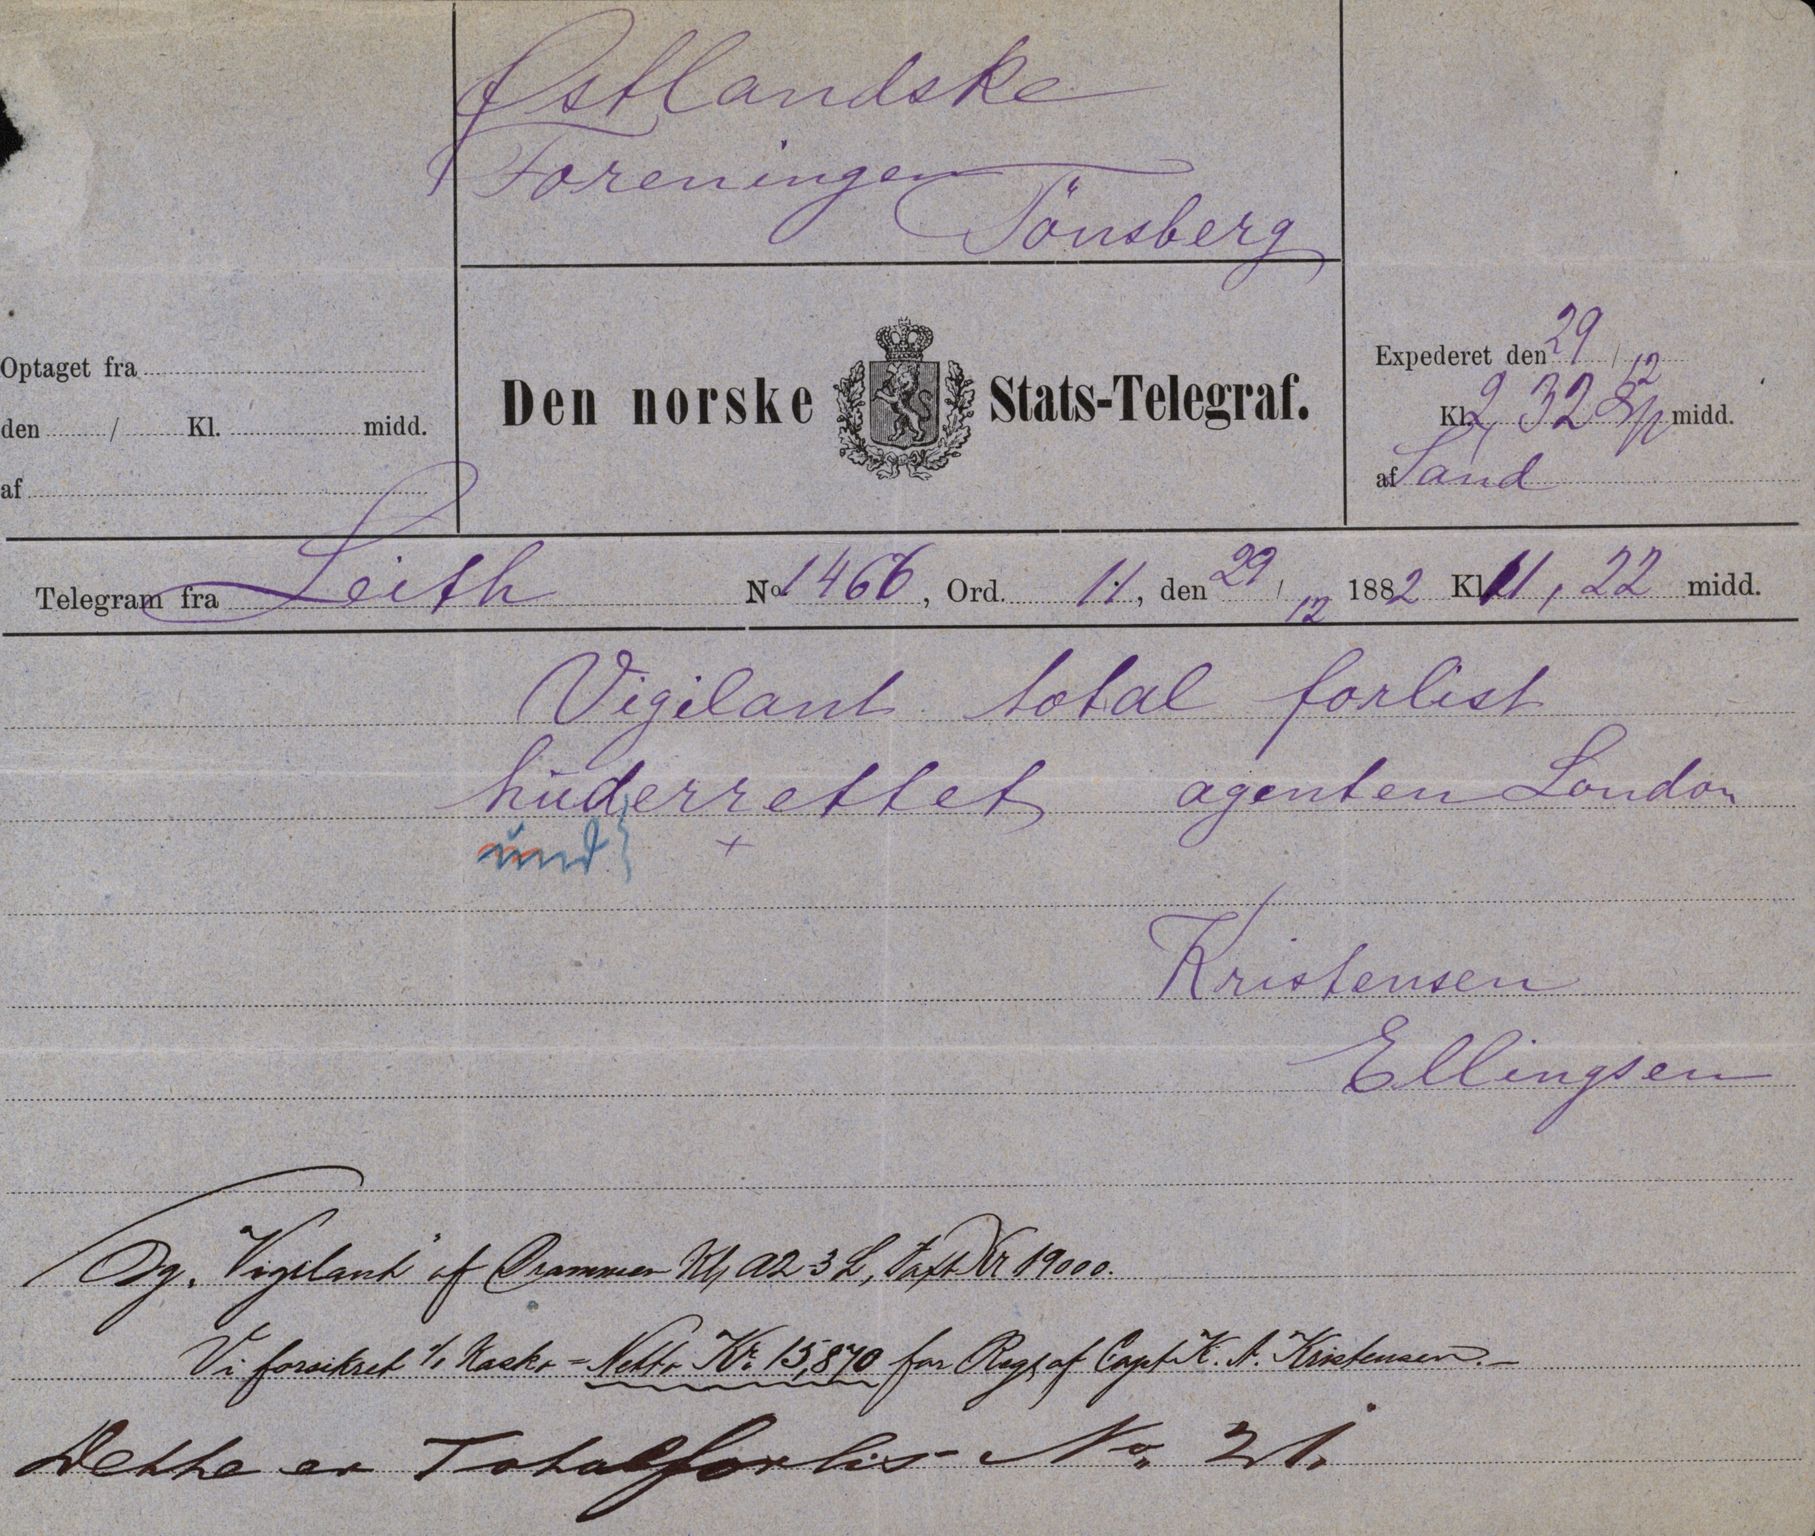 Østlandske
Foreningen
Tönsberg
Optaget fra
den / Kl. midd.
af
Den norske Stats-Telegraf.
Expederet den 29/12
Kl. 2,32 midd.
af Sand
Telegram fra Leith No 1466, Ord. 11, den 29/12 1882 Kl. 11,22 midd.
Vigilant total forlist
hüderrettet agenten London
und} +
Kristensen
Ellingsen
"Vigilant" af Drammen Kl. A2 3 L, Taxt Kr 19000.
Vi forsikret Kasko = Netto Kr. 15,870 for Regt af Capt. K. A. Kristensen.–
Dette er Totalforlis No. 21.